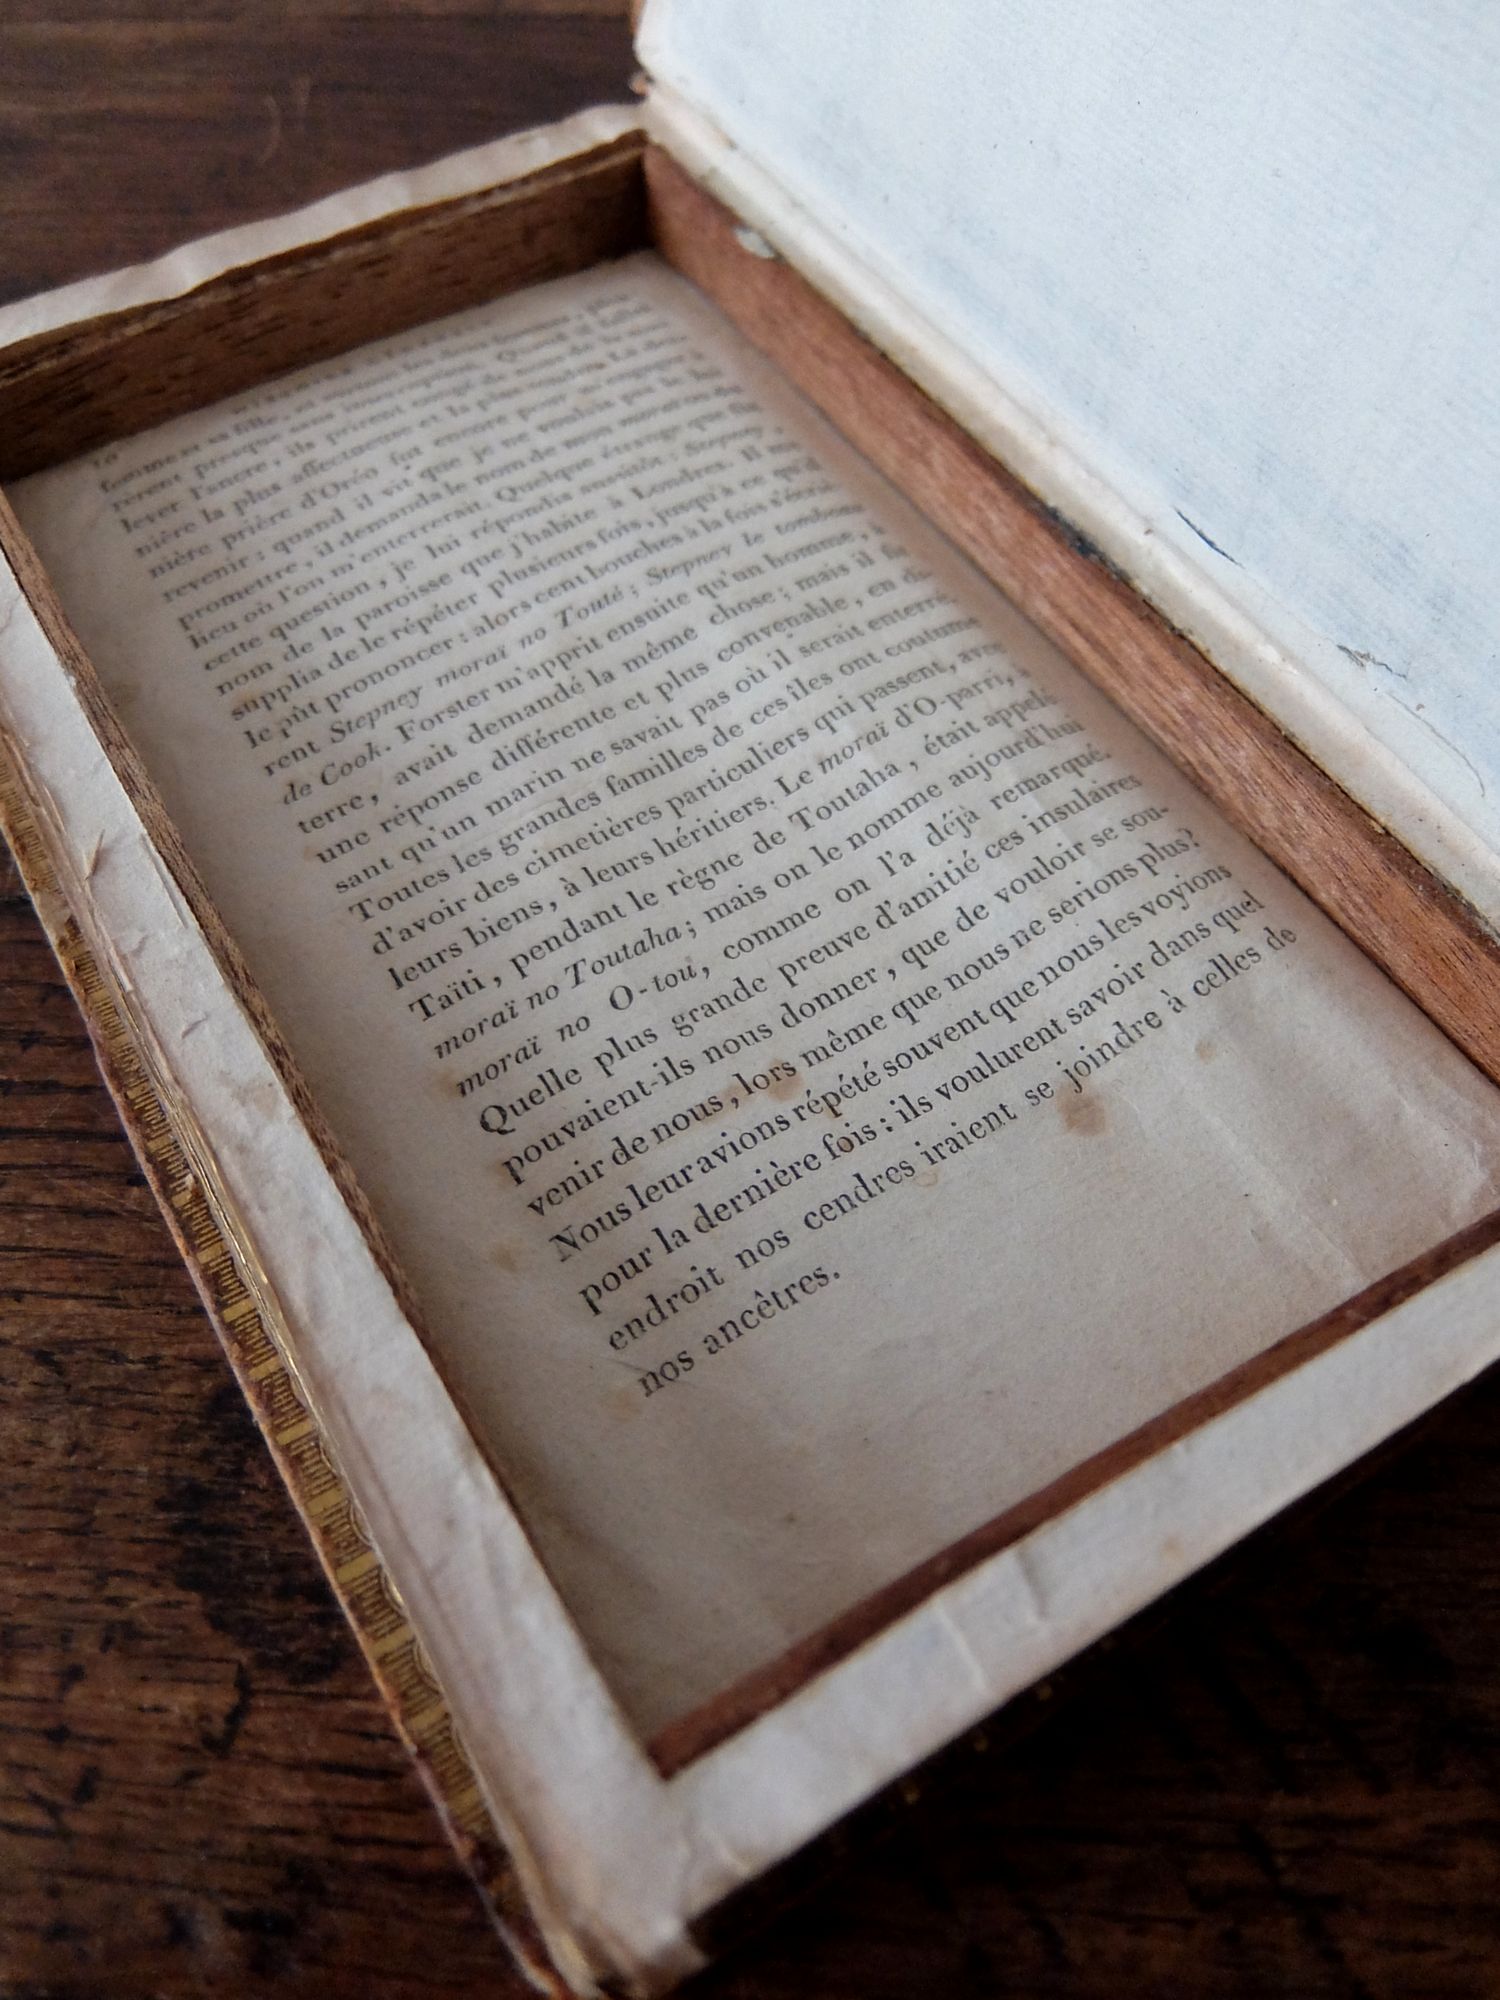 femme et sa fille, et surtout les deux femmes, pleu-
rèrent presque sans interruption. Quand il fallut
lever l'ancre, ils prirent congé de nous de la ma-
nière la plus affectueuse et la plus tendre. La der-
nière prière d'Oréo fut encore pour m'engager à
revenir : quand il vit que je ne voulais pas le lui
promettre, il demanda le nom de mon moraï ou du
lieu où l'on m'enterrerait. Quelque étrange que fût
cette question, je lui répondis aussitôt : Stepney,
nom de la paroisse que j'habite à Londres. Il me
supplia de le répéter plusieurs fois, jusqu'à ce qu'il
le pût prononcer : alors cent bouches à la fois s'écriè-
rent Stepney moraï no Touté ; Stepney le tombeau
de Cook. Forster m'apprit ensuite qu'un homme, à
terre, avait demandé la même chose ; mais il fit
une réponse différente et plus convenable, en di-
sant qu'un marin ne savait pas où il serait enterré.
Toutes les grandes familles de ces îles ont coutume
d'avoir des cimetières particuliers qui passent, avec
leurs biens, à leurs héritiers. Le moraï d'O-parri, à
Taïti, pendant le règne de Toutaha, était appelé
moraï no Toutaha ; mais on le nomme aujourd'hui
moraï no O-tou, comme on l'a déjà remarqué.
Quelle plus grande preuve d'amitié ces insulaires
pouvaient-ils nous donner, que de vouloir se sou-
venir de nous, lors même que nous ne serions plus?
Nous leur avions répété souvent que nous les voyions
pour la dernière fois : ils voulurent savoir dans quel
endroit nos cendres iraient se joindre à celles de
nos ancêtres.